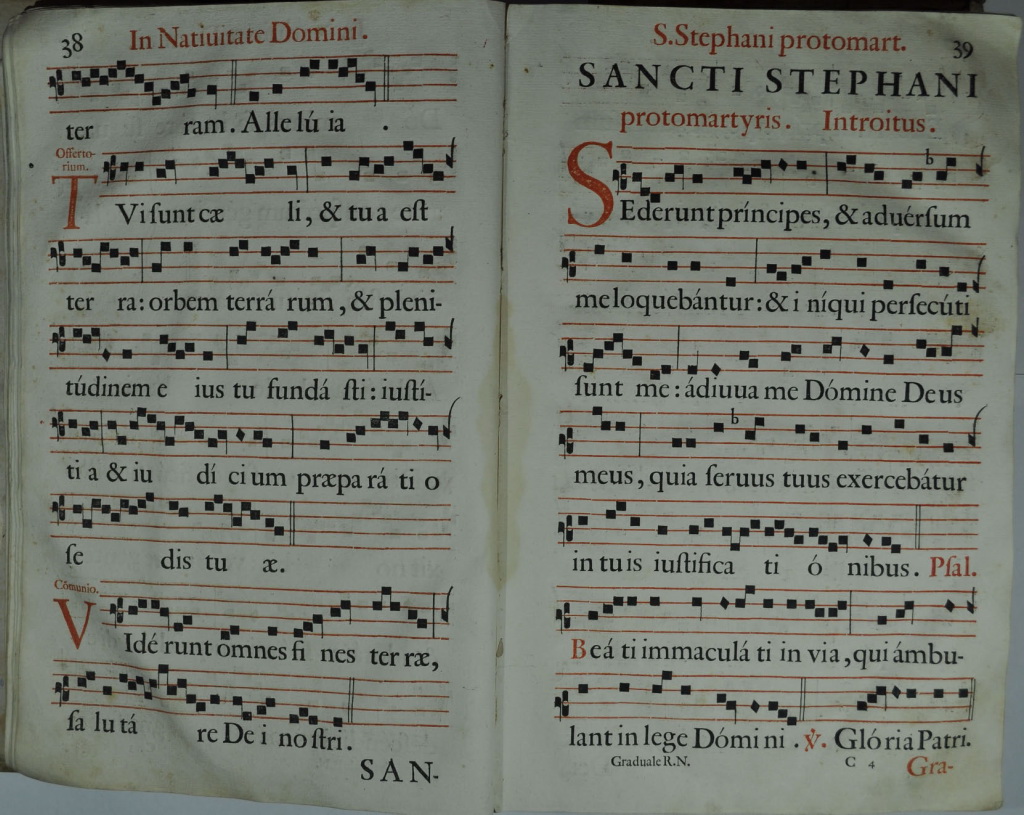 38
In Natiuitate Domini.
ter ram. Alle lú ia .
Offerto-
rium.
TVi ſunt cæ li, & tu a eſt
ter ra: orbem terrá rum, & pleni-
túdinem e ius tu fundá ſti: iuſtí-
ti a & iu dí ci um præpa rá ti o
ſe dis tu æ.
Cõmunio.
VIdé runt omnes fi nes ter ræ,
ſa lu tá re De i no ſtri.
SAN-
S. Stephani protomart.
39
SANCTI STEPHANI
protomartyris. Introitus.
SEderunt príncipes, & aduérſum
me loquebántur: & i níqui perſecúti
b
ſunt me: ádiuua me Dómine Deus
meus, quia ſeruus tuus exercebátur
b
in tu is iuſtifica ti ó nibus. Pſal.
Beá ti immaculá ti in via, qui ámbu-
lant in lege Dómi ni. ℣. Glória Patri.
Graduale R.N. C 4
Gra-